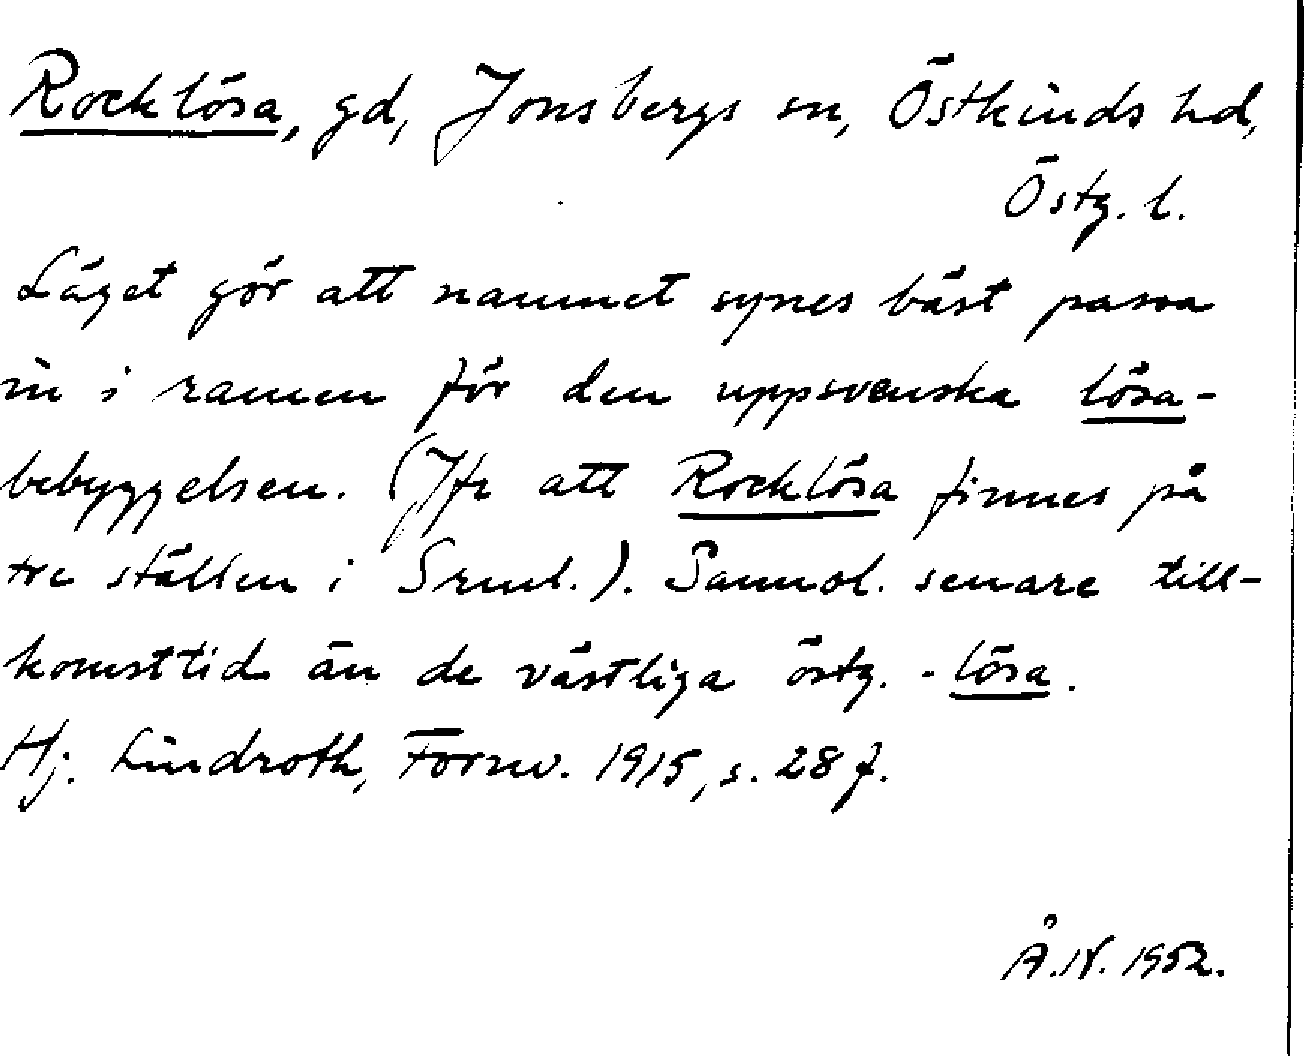 Rocklösa, gd, Jonsbergs sn, Östkinds hd,
Östg. l.
Läget gör att namnet synes bäst passa
in i ramen för den uppsvenska lösa-
bebyggelsen. (Jfr att Rocklösa finnes på
tre ställen i Srml.). Sannol. senare till-
komsttid än de västliga östg. -lösa.
Hj. Lindroth, Fornv. 1915, s. 28 f.
Å.N. 1952.